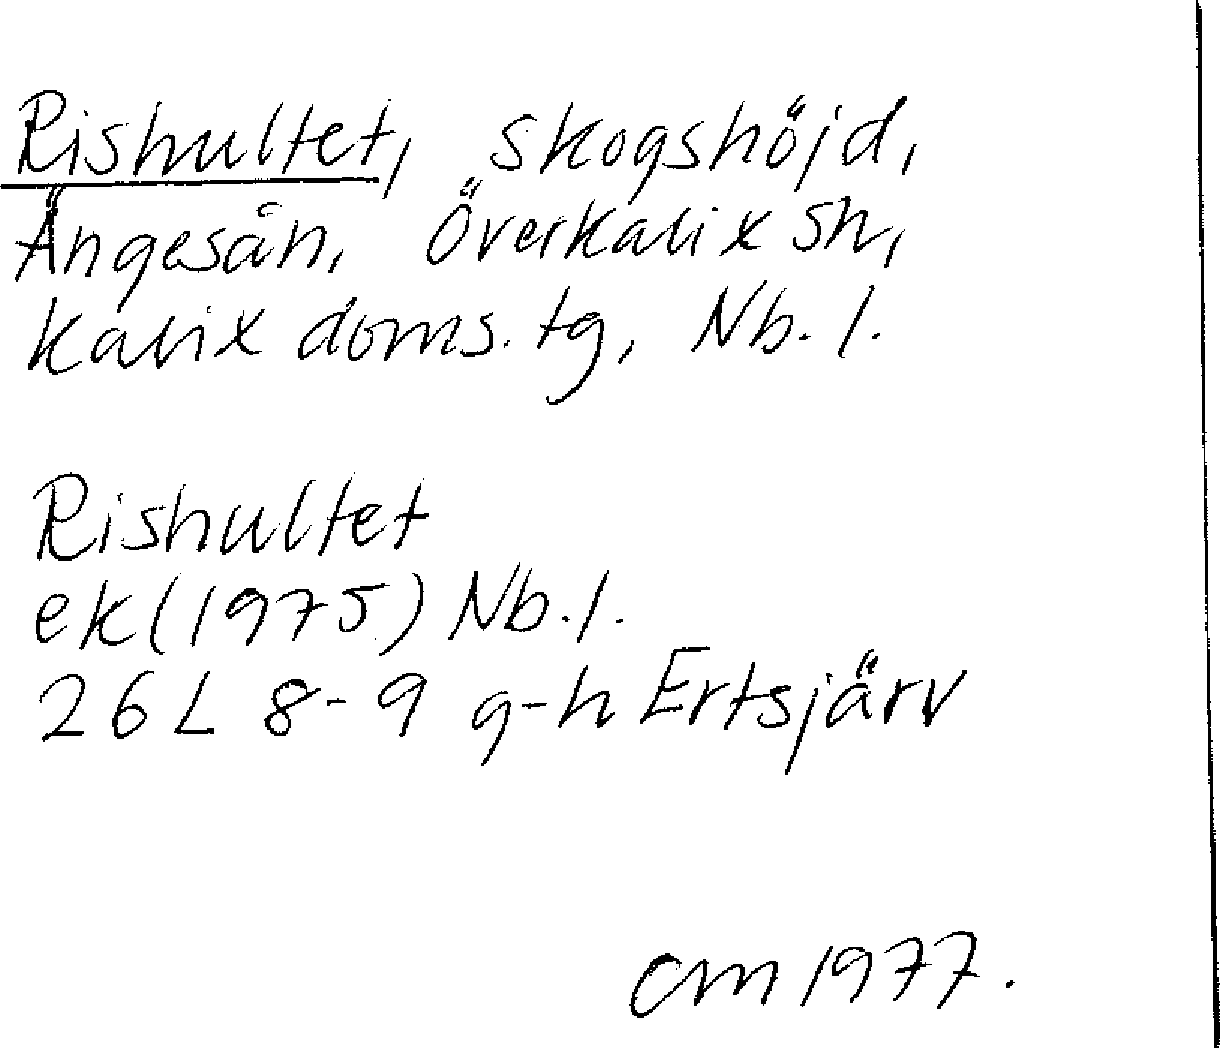 Rishultet, skogshöjd,
Ängesån, Överkalix sn,
Kalix doms. tg, Nb. l.
Rishultet
ek (1975) Nb. l.
26 L 8-9 g-h Ertsjärv
CM 1977.